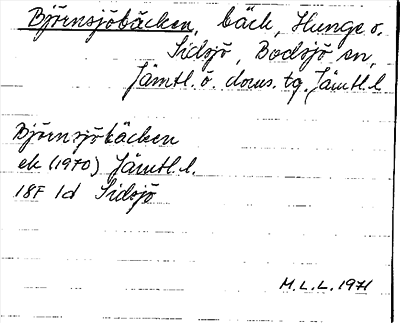 Björnsjöbäcken, bäck, Hunge o.
Sidsjö, Bodsjö sn,
Jämtl. ö. doms. tg. Jämtl. l
Björnsjöbäcken
ek (1970) Jämtl. l.
18F 1d Sidsjö
M.L.L. 1971